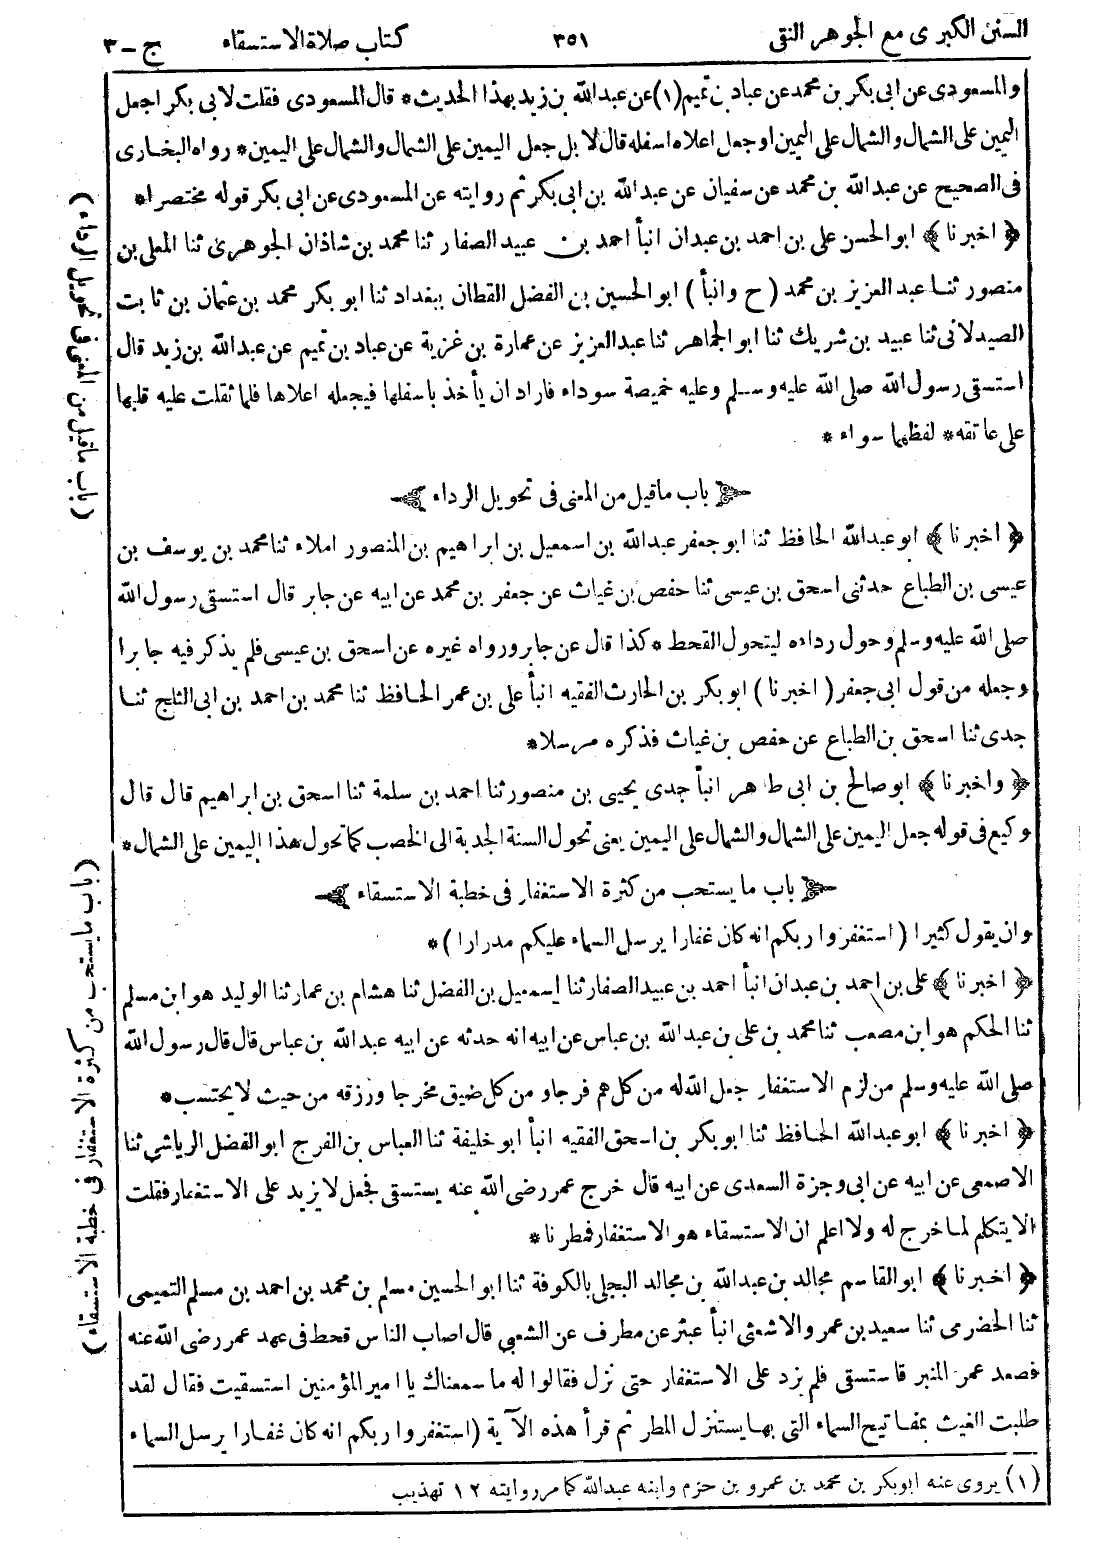 السنن الكبرى مع الجوهر النقى ٣٥١ كتاب صلاة الاستسقاء ج-٣
والمسعودى عن ابى بكر بن محمد عن عباد بن تميم (١) عن عبدالله بن زيد بهذا الحديث * قال المسعودى فقلت لابى بكر اجعل
اليمين على الشمال والشمال على اليمين او جعل اعلاه اسفله قال لا بل جعل اليمين على الشمال والشمال على اليمين * رواه البخارى
فى الصحيح عن عبدالله بن محمد عن سفيان عن عبدالله بن ابى بكر ثم روايته عن المسعودى عن ابى بكر قوله مختصرا *
﴿ اخبرنا ﴾ ابو الحسن على بن احمد بن عبدان انبأ احمد بن عبيد الصفار ثنا محمد بن شاذان الجوهرى ثنا المعلى بن
منصور ثنا عبد العزيز بن محمد ( ح وانبأ ) ابو الحسين بن الفضل القطان ببغداد ثنا ابو بكر محمد بن عثمان بن ثابت
الصيدلانى ثنا عبيد بن شريك ثنا ابو الجماهر ثنا عبدالعزيز عن عمارة بن غزية عن عباد بن تميم عن عبدالله بن زيد قال
استسقى رسول الله صلى الله عليه وسلم وعليه خميصة سوداء فاراد ان يأخذ باسفلها فيجعله اعلاها فلما ثقلت عليه قلبها
على عاتقه * لفظهما سواء *
باب ماقيل من المعنى فى تحويل الرداء
﴿ اخبرنا ﴾ ابو عبدالله الحافظ ثنا ابو جعفر عبدالله بن اسمعيل بن ابراهيم بن المنصور املاء ثنا محمد بن يوسف بن
عيسى بن الطباع حدثنى اسحق بن عيسى ثنا حفص بن غياث عن جعفر بن محمد عن ابيه عن جابر قال استسقى رسول الله
صلى الله عليه وسلم وحول رداءه ليتحول القحط * كذا قال عن جابر ورواه غيره عن اسحق بن عيسى فلم يذكر فيه جابرا
وجعله من قول ابى جعفر ( اخبرنا ) ابو بكر بن الحارث الفقيه انبأ على بن عمر الحافظ ثنا محمد بن احمد بن ابى الثلج ثنا
جدى ثنا اسحق بن الطباع عن حفص بن غياث فذكره مرسلا *
﴿ واخبرنا ﴾ ابو صالح بن ابى طاهر انبأ جدى يحيى بن منصور ثنا احمد بن سلمة ثنا اسحق بن ابراهيم قال قال
وكيع فى قوله جعل اليمين على الشمال والشمال على اليمين يعنى تحول السنة الجدبة الى الخصب كما تحول هذا اليمين على الشمال *
باب ما يستحب من كثرة الاستغفار فى خطبة الاستسقاء
وان يقول كثيرا ( استغفروا ربكم انه كان غفارا يرسل السماء عليكم مدرارا ) *
﴿ اخبرنا ﴾ على بن احمد بن عبدان انبأ احمد بن عبيد الصفار ثنا اسمعيل بن الفضل ثنا هشام بن عمار ثنا الوليد هو ابن مسلم
ثنا الحكم هو ابن مصعب ثنا محمد بن على بن عبدالله بن عباس عن ابيه انه حدثه عن ابيه عبدالله بن عباس قال قال رسول الله
صلى الله عليه وسلم من لزم الاستغفار جعل الله له من كل هم فرجا ومن كل ضيق مخرجا ورزقه من حيث لا يحتسب *
﴿ اخبرنا ﴾ ابو عبدالله الحافظ ثنا ابو بكر بن اسحق الفقيه انبأ ابو خليفة ثنا العباس بن الفرج ابو الفضل الرياشى ثنا
الاصمعى عن ابيه عن ابى وجزة السعدى عن ابيه قال خرج عمر رضى الله عنه يستسقى فجعل لا يزيد على الاستغفار فقلت
الا يتكلم لما خرج له ولا اعلم ان الاستسقاء هو الاستغفار فمطرنا *
﴿ اخبرنا ﴾ ابو القاسم مجالد بن عبدالله بن مجالد البجلى بالكوفة ثنا ابو الحسين مسلم بن محمد بن احمد بن مسلم التميمى
ثنا الحضرمى ثنا سعيد بن عمرو الاشعثى انبأ عبثر عن مطرف عن الشعبى قال اصاب الناس قحط فى عهد عمر رضى الله عنه
فصعد عمر المنبر فاستسقى فلم يزد على الاستغفار حتى نزل فقالوا له ما سمعناك يا امير المؤمنين استسقيت فقال لقد
طلبت الغيث بمفاتيح السماء التى بها يستنزل المطر ثم قرأ هذه الآية ( استغفروا ربكم انه كان غفارا يرسل السماء
(١) يروى عنه ابوبكر بن محمد بن عمرو بن حزم وابنه عبدالله كما مر روايته ١٢ تهذيب
( باب ماقيل من المعنى فى تحويل الرداء )
( باب ما يستحب من كثرة الاستغفار فى خطبة الاستسقاء )